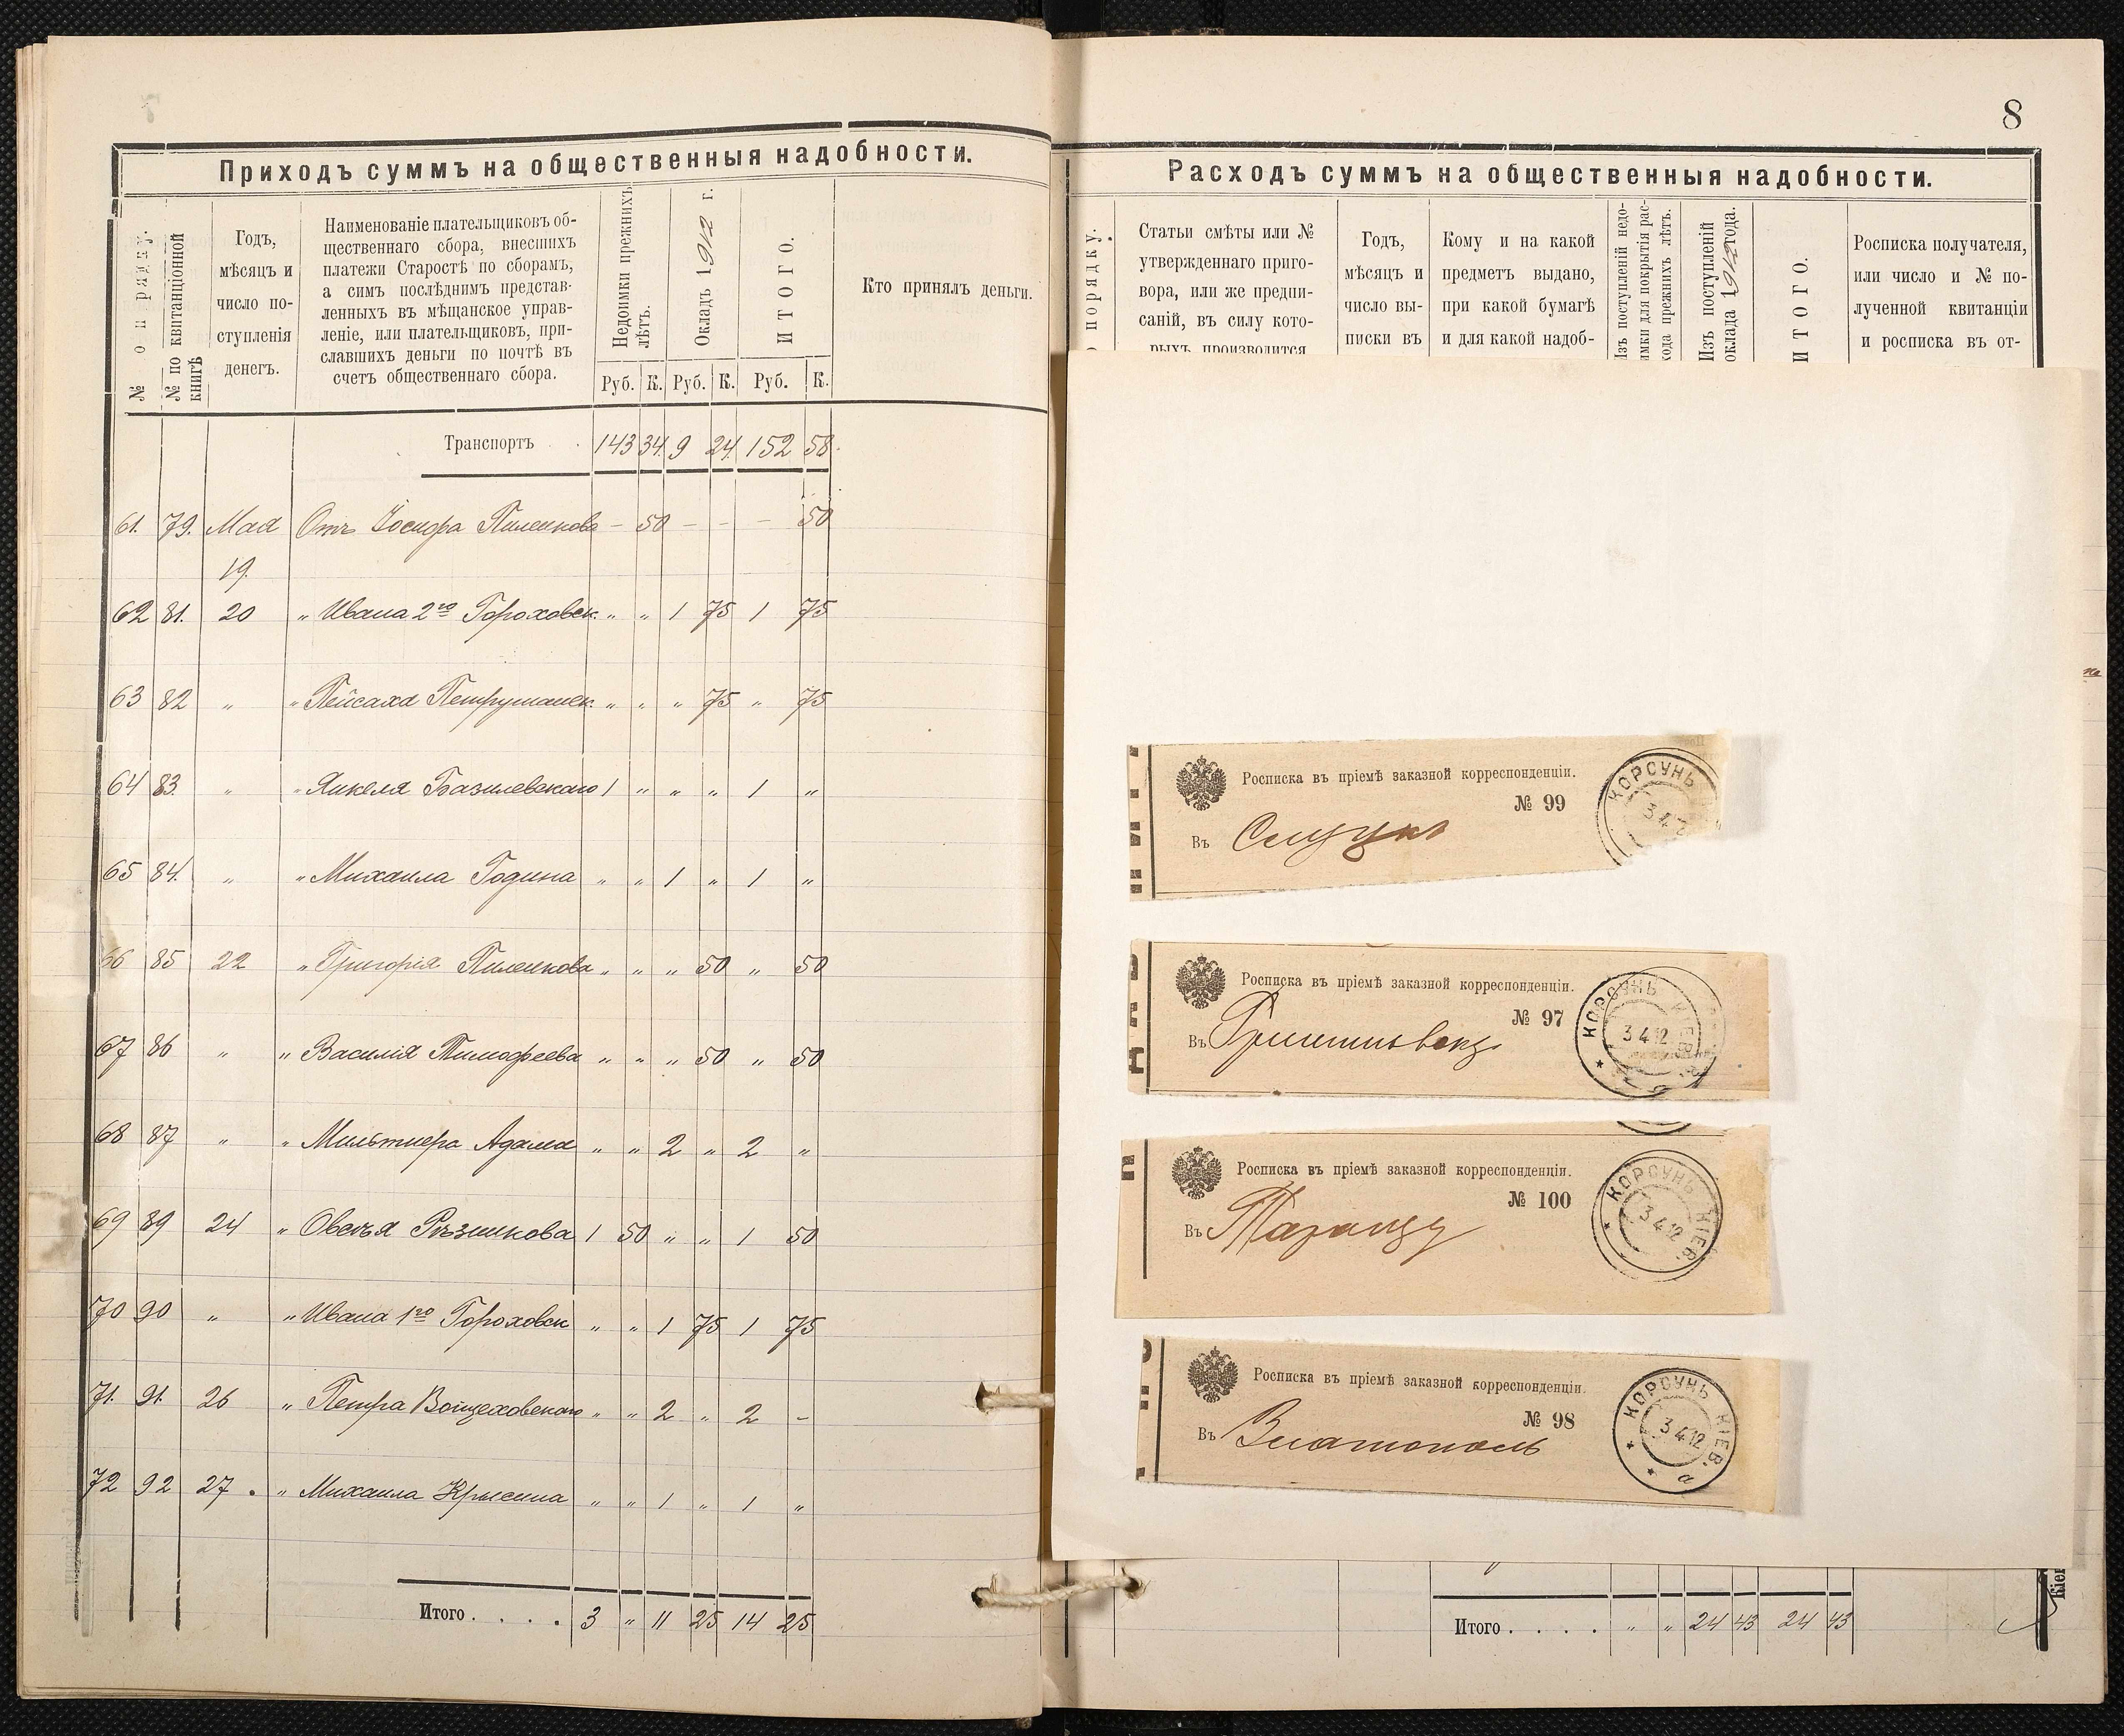 Приходъ суммъ на общественныя надобности.
№ по порядку.
№ по квитанціонной
книгѣ
Годъ,
мѣсяцъ и
число по-
ступленія
денегъ.
Наименованіе плательщиковъ об-
щественнаго сбора, внесшихъ
платежи Старостѣ по сборамъ,
а симъ послѣднимъ представ-
ленныхъ въ мѣщанское управ-
леніе, или плательщиковъ, при-
славшихъ деньги по почтѣ въ
счетъ общественнаго сбора.
Недоимки прежнихъ
лѣтъ.
Окладъ 1912 г.
ИТОГО.
Кто принялъ деньги.
Руб. К. Руб. К. Руб. К.
Транспортъ 143 34. 9 24. 152 58.
61. 79. Мая Отъ Іосифа Пиленкова – 50 – – – 50
19.
62 81. 20 „ Ивана 2го Гороховск. „ „ 1 75 1 75
63 82 „ „ Пейсаха Петрушанск. „ „ „ 75 „ 75
64 83. „ „ Янкеля Базилевскаго 1 „ „ „ 1 „
65 84. „ „ Михаила Година „ „ 1 „ 1 „
66 85 22 „ Григорія Пиленкова „ „ „ 50 „ 50
67 86 „ „ Василія Тимофеева „ „ „ 50 „ 50
68 87 „ „ Мильтнера Адама „ „ 2 „ 2 „
69 89 24 „ Овсѣя Рѣзникова 1 50 „ „ 1 50
70 90 „ „ Ивана 1го Гороховск „ „ 1 75 1 75
71. 91. 26 „ Петра Войцеховскаго „ „ 2 „ 2 –
72 92 27. „ Михаила Крысина „ „ 1 „ 1 „
Итого. . . . 3 „ 11 25 14 25
8
Расходъ суммъ на общественныя надобности.
порядку.
Статьи смѣты или №
утвержденнаго приго-
вора, или же предпи-
саній, въ силу кото-
рыхъ производится
Годъ,
мѣсяцъ и
число вы-
писки въ
Кому и на какой
предметъ выдано,
при какой бумагѣ
и для какой надоб-
Изъ поступленій недо-
имки для покрытія рас-
хода прежнихъ лѣтъ.
Изъ поступленій
оклада 1912 года.
ИТОГО.
Росписка получателя,
или число и № по-
лученной квитанціи
и росписка въ от-
Росписка въ пріемѣ заказной корреспонденціи.
№ 99
Въ Слуцкъ
КОРСУНЬ
3 4
Росписка въ пріемѣ заказной корреспонденціи.
№ 97
Въ
КОРСУНЬ КІЕВ.
3 4 12
Росписка въ пріемѣ заказной корреспонденціи.
№ 100
Въ Таращу
КОРСУНЬ КІЕВ.
3 4 12
Росписка въ пріемѣ заказной корреспонденціи.
№ 98
Въ Златополь
КОРСУНЬ КІЕВ. а
3 4 12
Итого. . . . „ „ 24 43 24 43